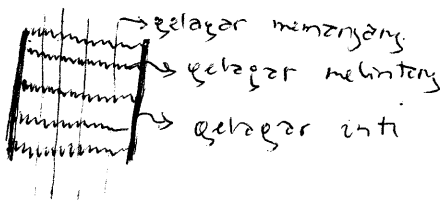 gelagar memanjang
gelagar melintang
gelagar inti